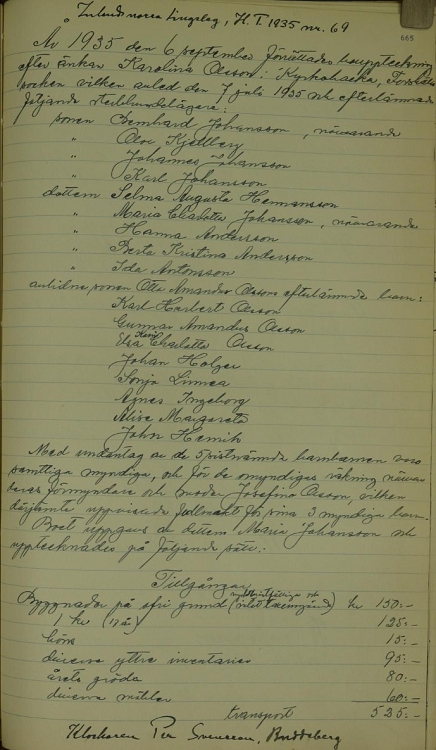 Inlands norra tingslag, H.T. 1935 nr. 69
665
År 1935 den 6 september förrättades bouppteckning
efter änkan Karolina Olsson i Kyrkohacka,
socken vilken avled den 7 juli 1935 och efterlämnade
följande sterbhusdelägare:
sonen Bernhard Johansson, närvarande
" Olov Kjellberg
" Johannes Johansson
" Karl Johansson
dottern Selma Augusta Hermansson
" Maria Charlotta Johansson, närvarande
" Hanna Andersson
" Berta Kristina Andersson
" Ida Antonsson
avlidne sonen Otto Amandus Olssons efterlämnade barn:
Karl Herbert Olsson
Gunnar Amandus Olsson
Charlotta Olsson
Johan Holger
Sonja Linnea
Agnes Ingeborg
Alise Margareta
John Henrik
Med undantag av de 5 sistnämda barnbarnen voro
samtliga myndiga, och för de omyndigas räkning närvar
deras förmyndare och moder Josefina Olsson, vilken
därjämte uppvisade fullmakt för sina 3 myndiga barn.
Boet uppgavs av dottern Maria Johansson och
upptecknades på följande sätt:
Tillgångar
Byggnader på ofri grund kr 150:-
1 ko 125:-
höns 15:-
diverse yttre inventarier 95:-
årets gröda 80:-
diverse möbler 60:-
transport 525:-
Klockaren Per Svensson, Bräcke